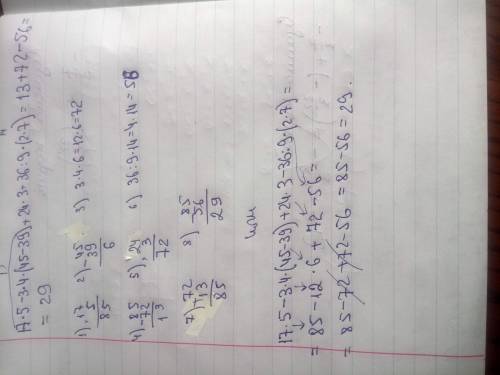 17·5-3·4·(45-39)+24·3-36:9·(2·7)=13+72-56=
=29
1) ×17
5
85
2) -45
39
6
3) 3·4·6=12·6=72
4) -85
72
13
5) ×24
3
72
6) 36:9·14=4·14=56
7) +72
13
85
8) -85
56
29
или
17·5-3·4·(45-39)+24·3-36:9·(2·7)=
=85-12·6+72-56=
=85-72+72-56=85-56=29.